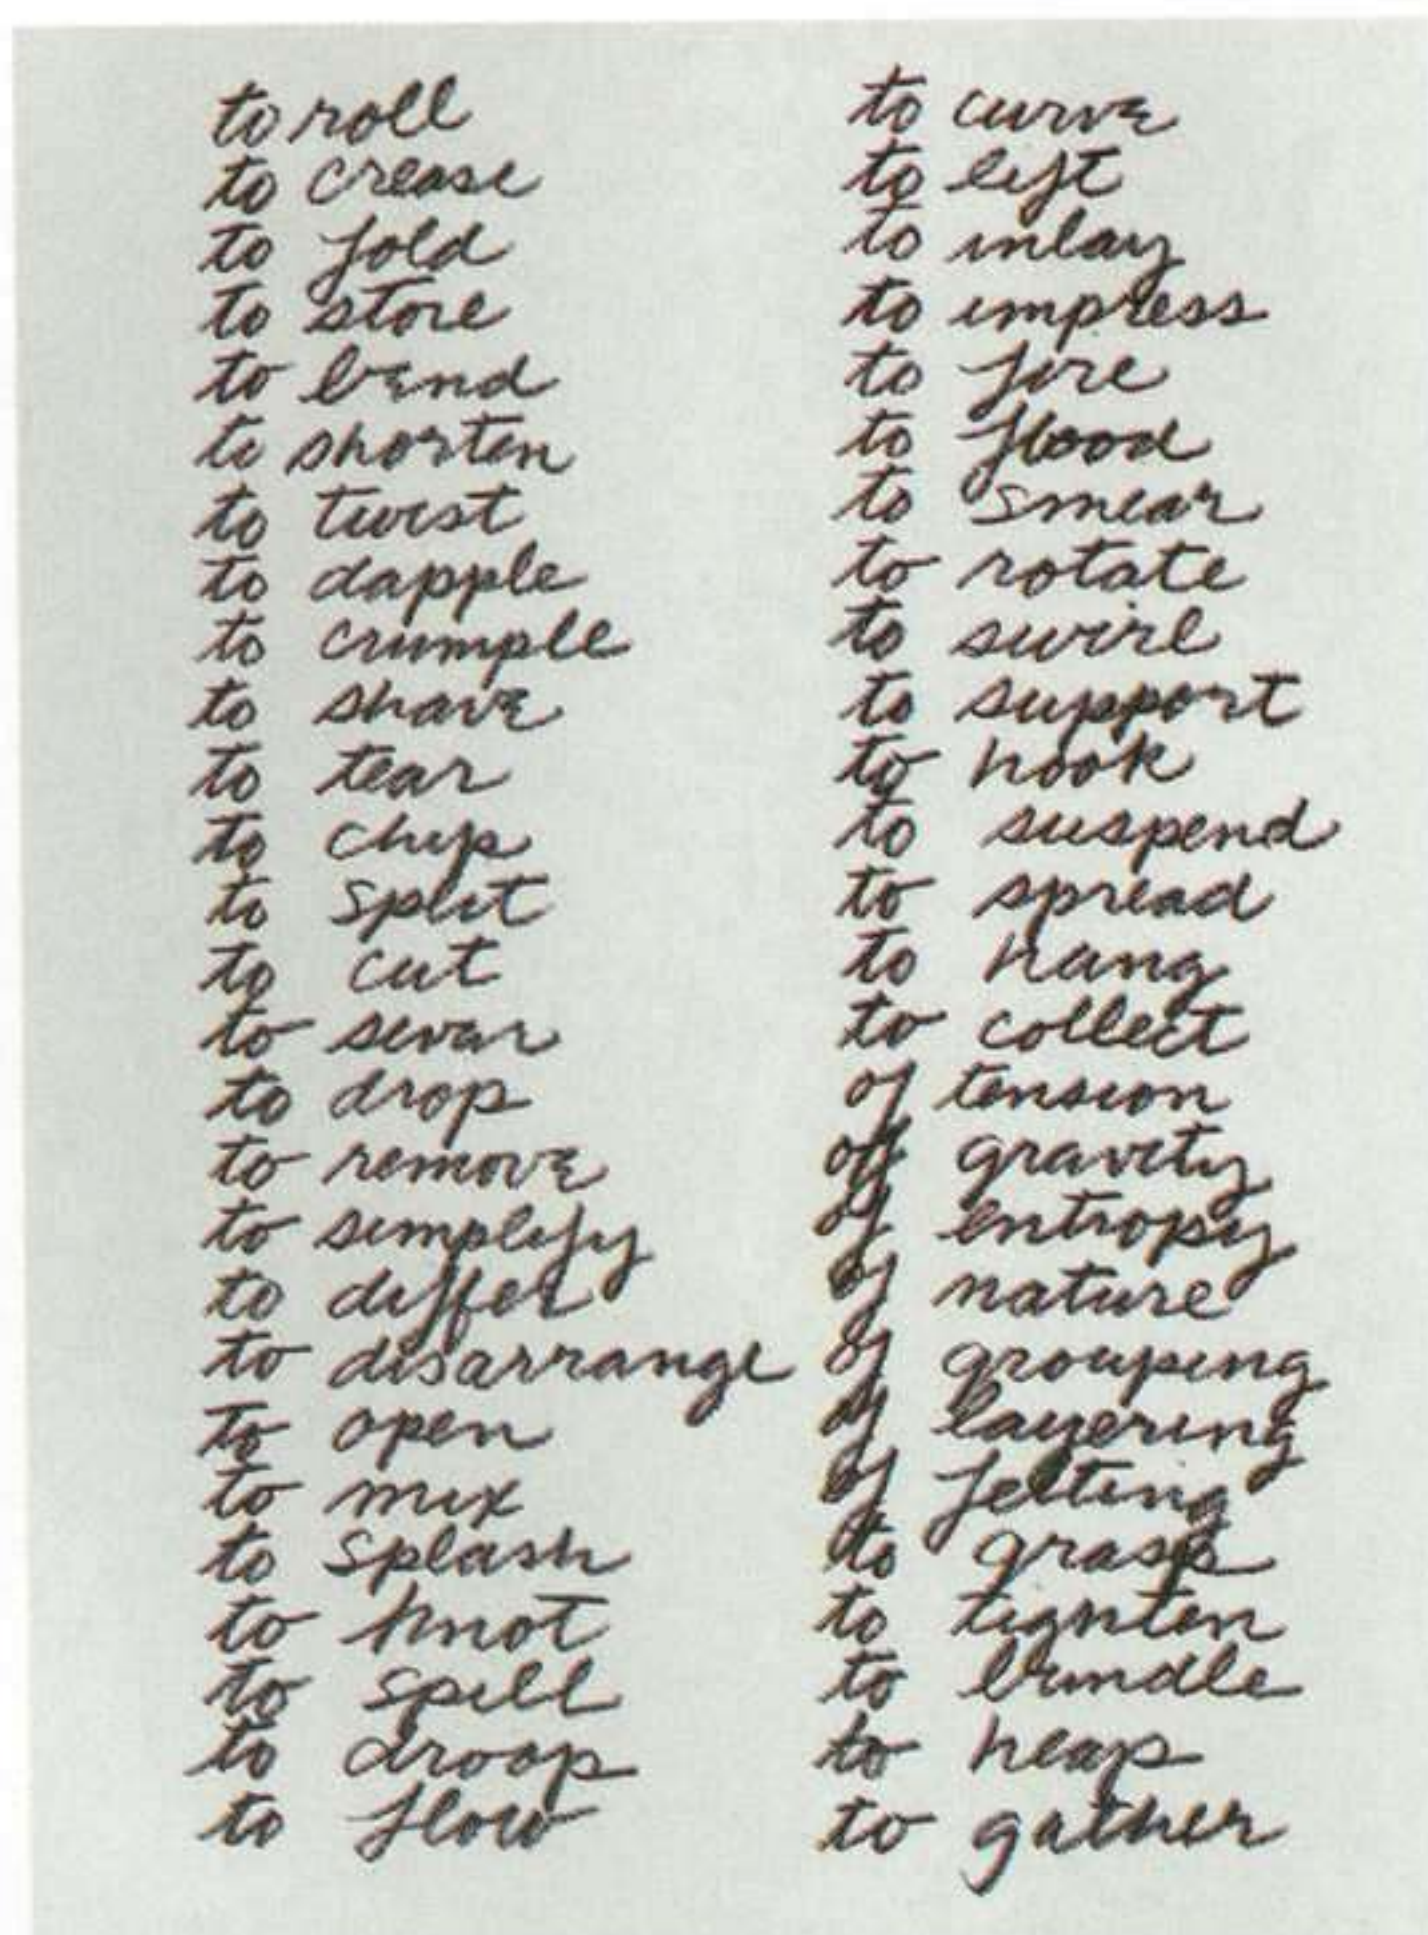 to roll
to crease
to fold
to store
to bend
to shorten
to twist
to dapple
to crumple
to shave
to tear
to chip
to split
to cut
to sevar
to drop
to remove
to simplify
to differ
to disarrange
to open
to mix
to splash
to knot
to spill
to droop
to flow
to curve
to lift
to inlay
to impress
to fire
to flood
to smear
to rotate
to swirl
to support
to hook
to suspend
to spread
to hang
to collect
of tension
of gravity
of entropy
of nature
of grouping
of layering
of felting
to grasp
to tighten
to bundle
to heap
to gather